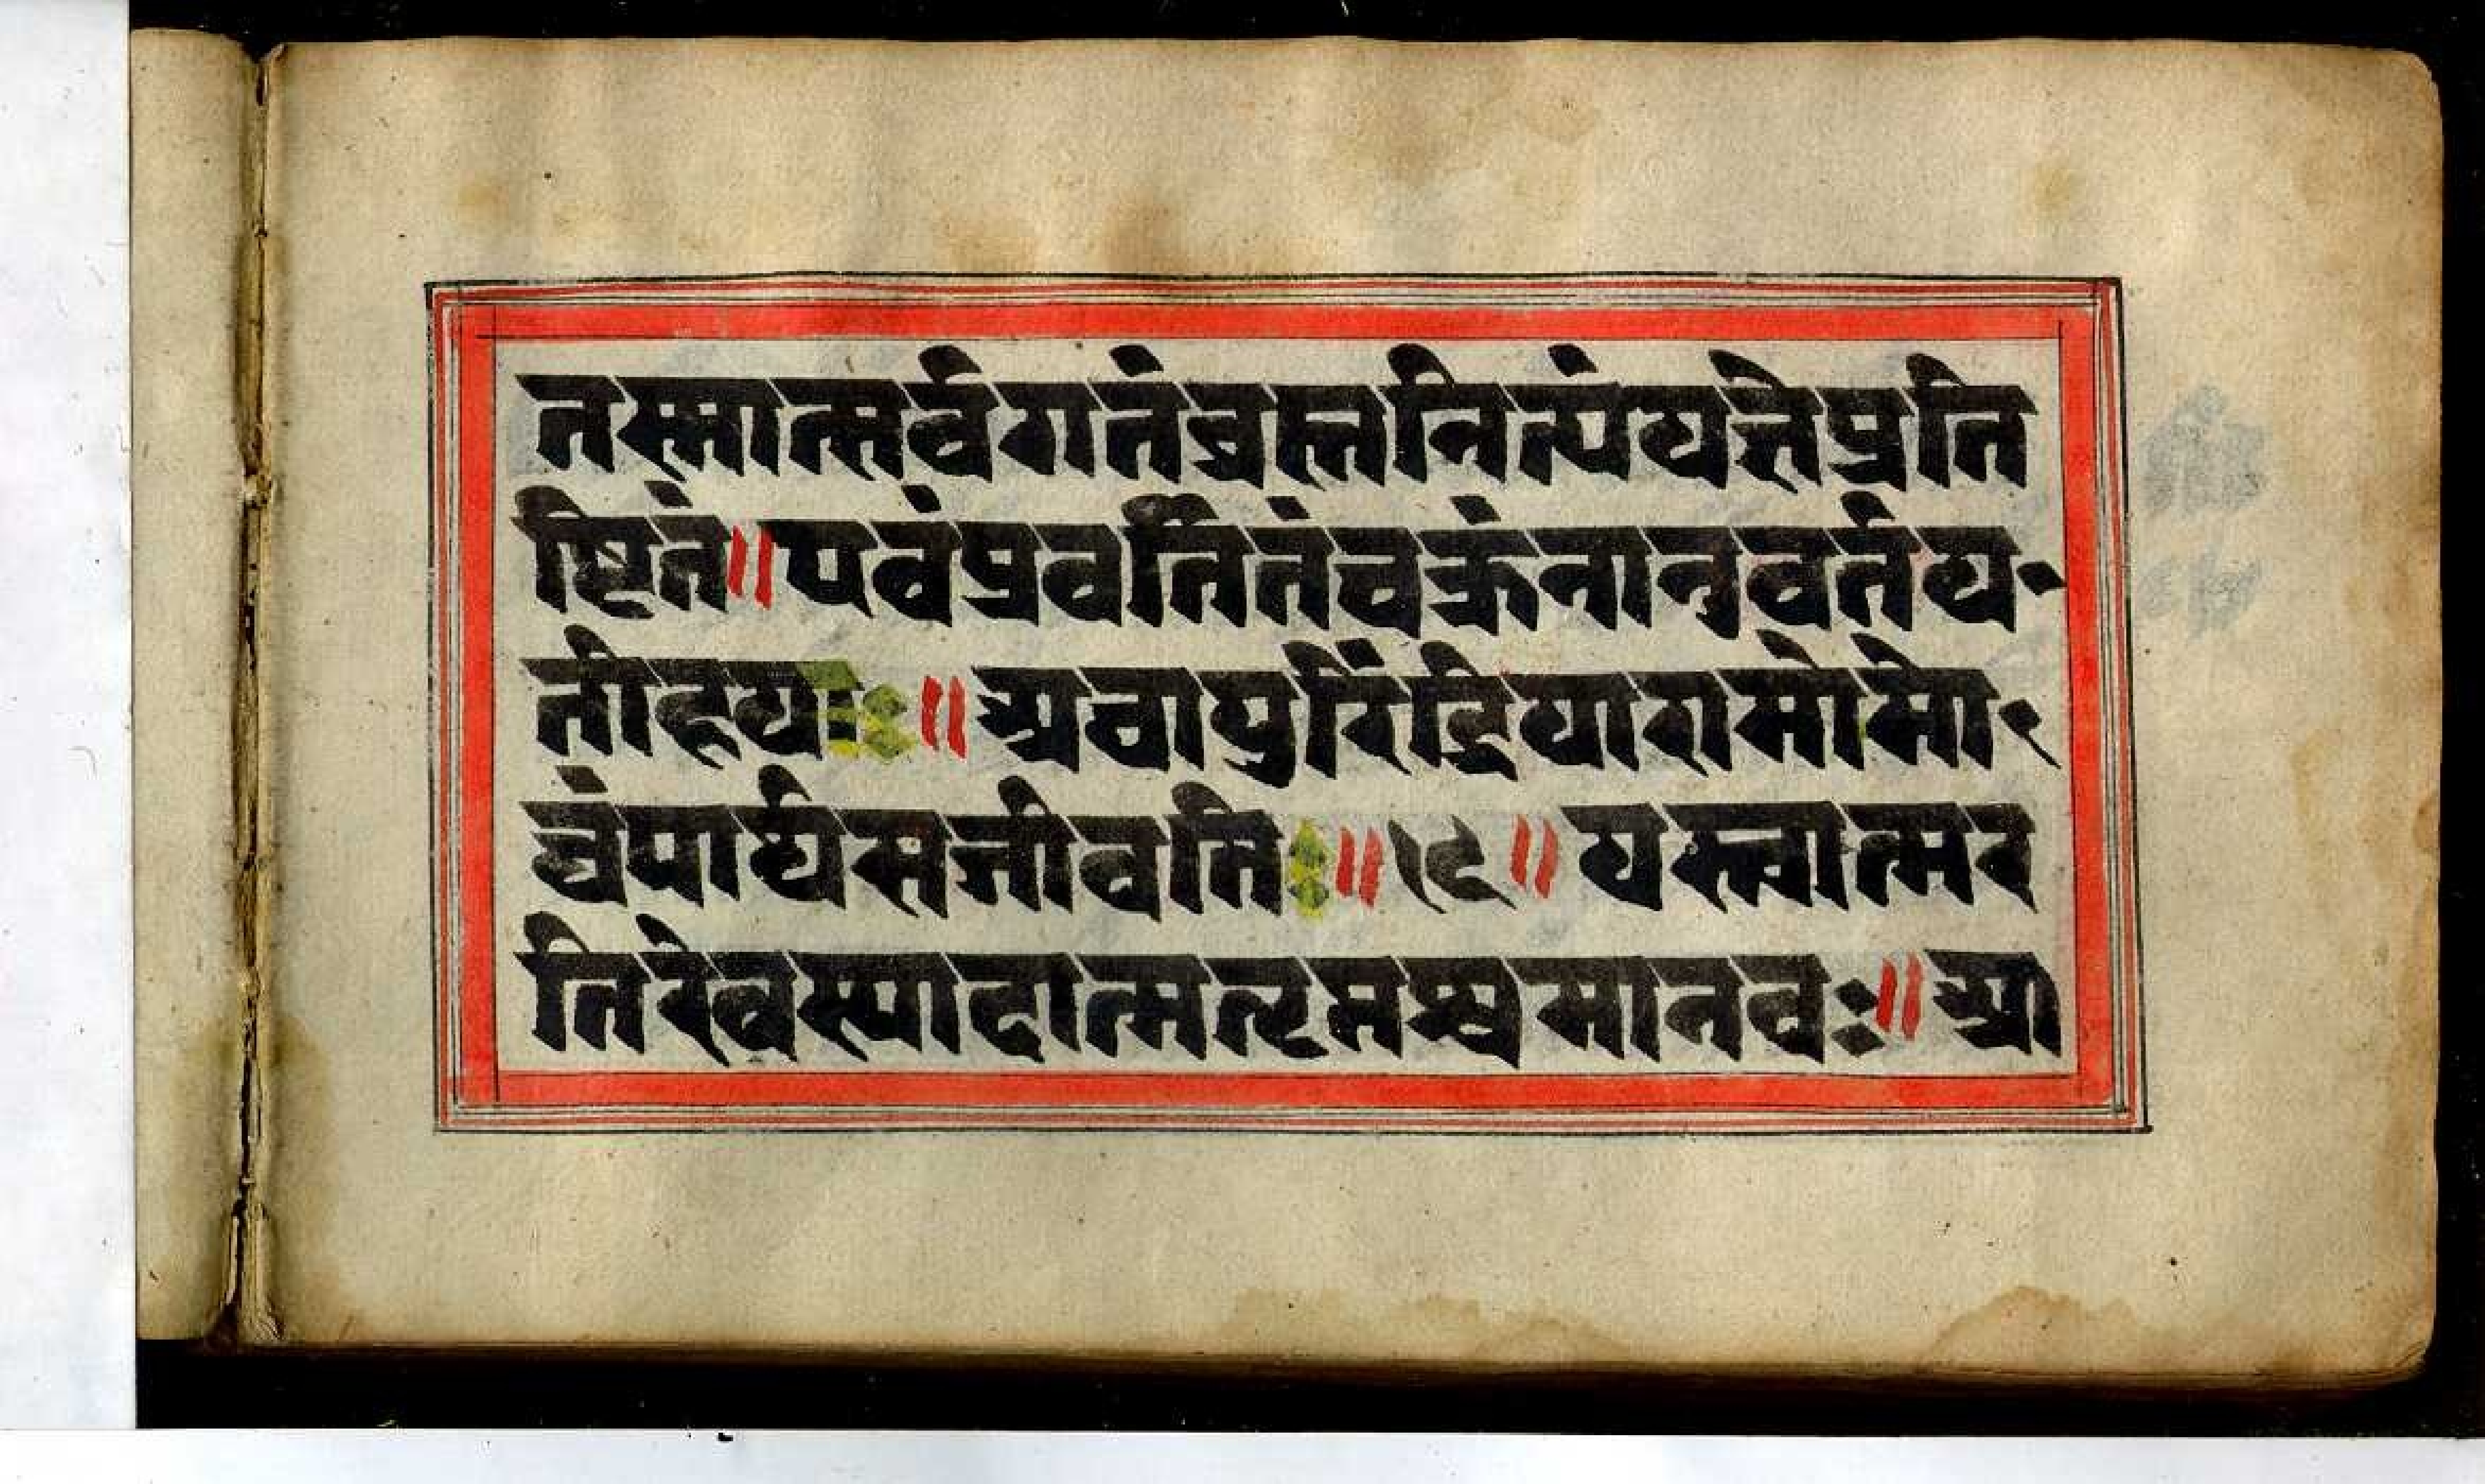 तस्मात्सर्वगतंब्रह्मनित्यंयज्ञेप्रति
ष्टितं॥एवंप्रवर्तितंचक्रंनानुवर्तय-
तीहयः॥अघायुरिंद्रियारामोमो
घंपार्थसजीवति॥१६॥यस्त्वात्मर
तिरेवस्यादात्मतृप्तश्चमानवः॥आ